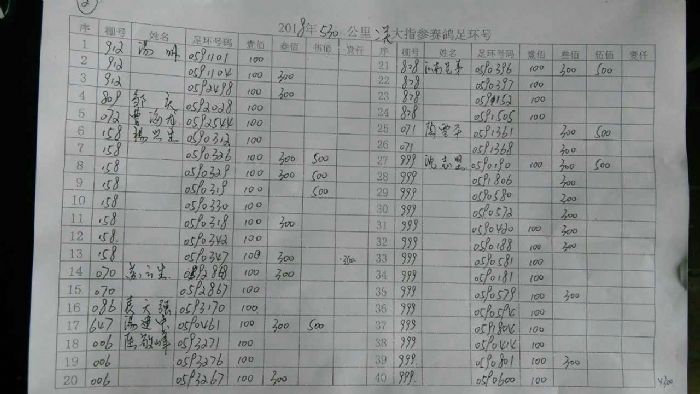 2018年530公里 大指参赛鸽足环号
序 棚号 姓名 足环号码 壹佰 叁佰 伍佰 责任
1 912 0591101 100
2 912 0591104 100 300
3 912 0592498 100 300
4 809 0592028 100
5 072 0592544 100
6 158 0590312 100
7 158 0590326 100 300 500
8 158 0590329 100 300 500
9 158 0590319 100 500
10 158 0590330 100
11 158 0590318 100 300
12 158 0590342 100
13 158 0590347 100 300
14 070 100 300
15 070 0592867 100
16 086 0593170 100
17 647 0590461 100 300 500
18 006 0593271 100
19 006 0593276 100
20 006 0593267 100 300
序 棚号 姓名 足环号码 壹佰 叁佰 伍佰 责任
21 828 0590396 100 300 500
22 828 0590397 100
23 828 100
24 828 0591505 100
25 071 0591361 300 500
26 071 0591368 300
27 999 沈志里 0590190 100 300 500
28 999 0591806 300
29 999 0590580 300
30 999 0590572 300
31 999 0590420 100 300
32 999 0590188 100 300
33 999 0590581 100
34 999 0590181 100
35 999 0590579 100 300
36 999 0590594 100
37 999 0591804 100
38 999 0590414 100
39 999 0590801 100 300
40 999 0590600 100